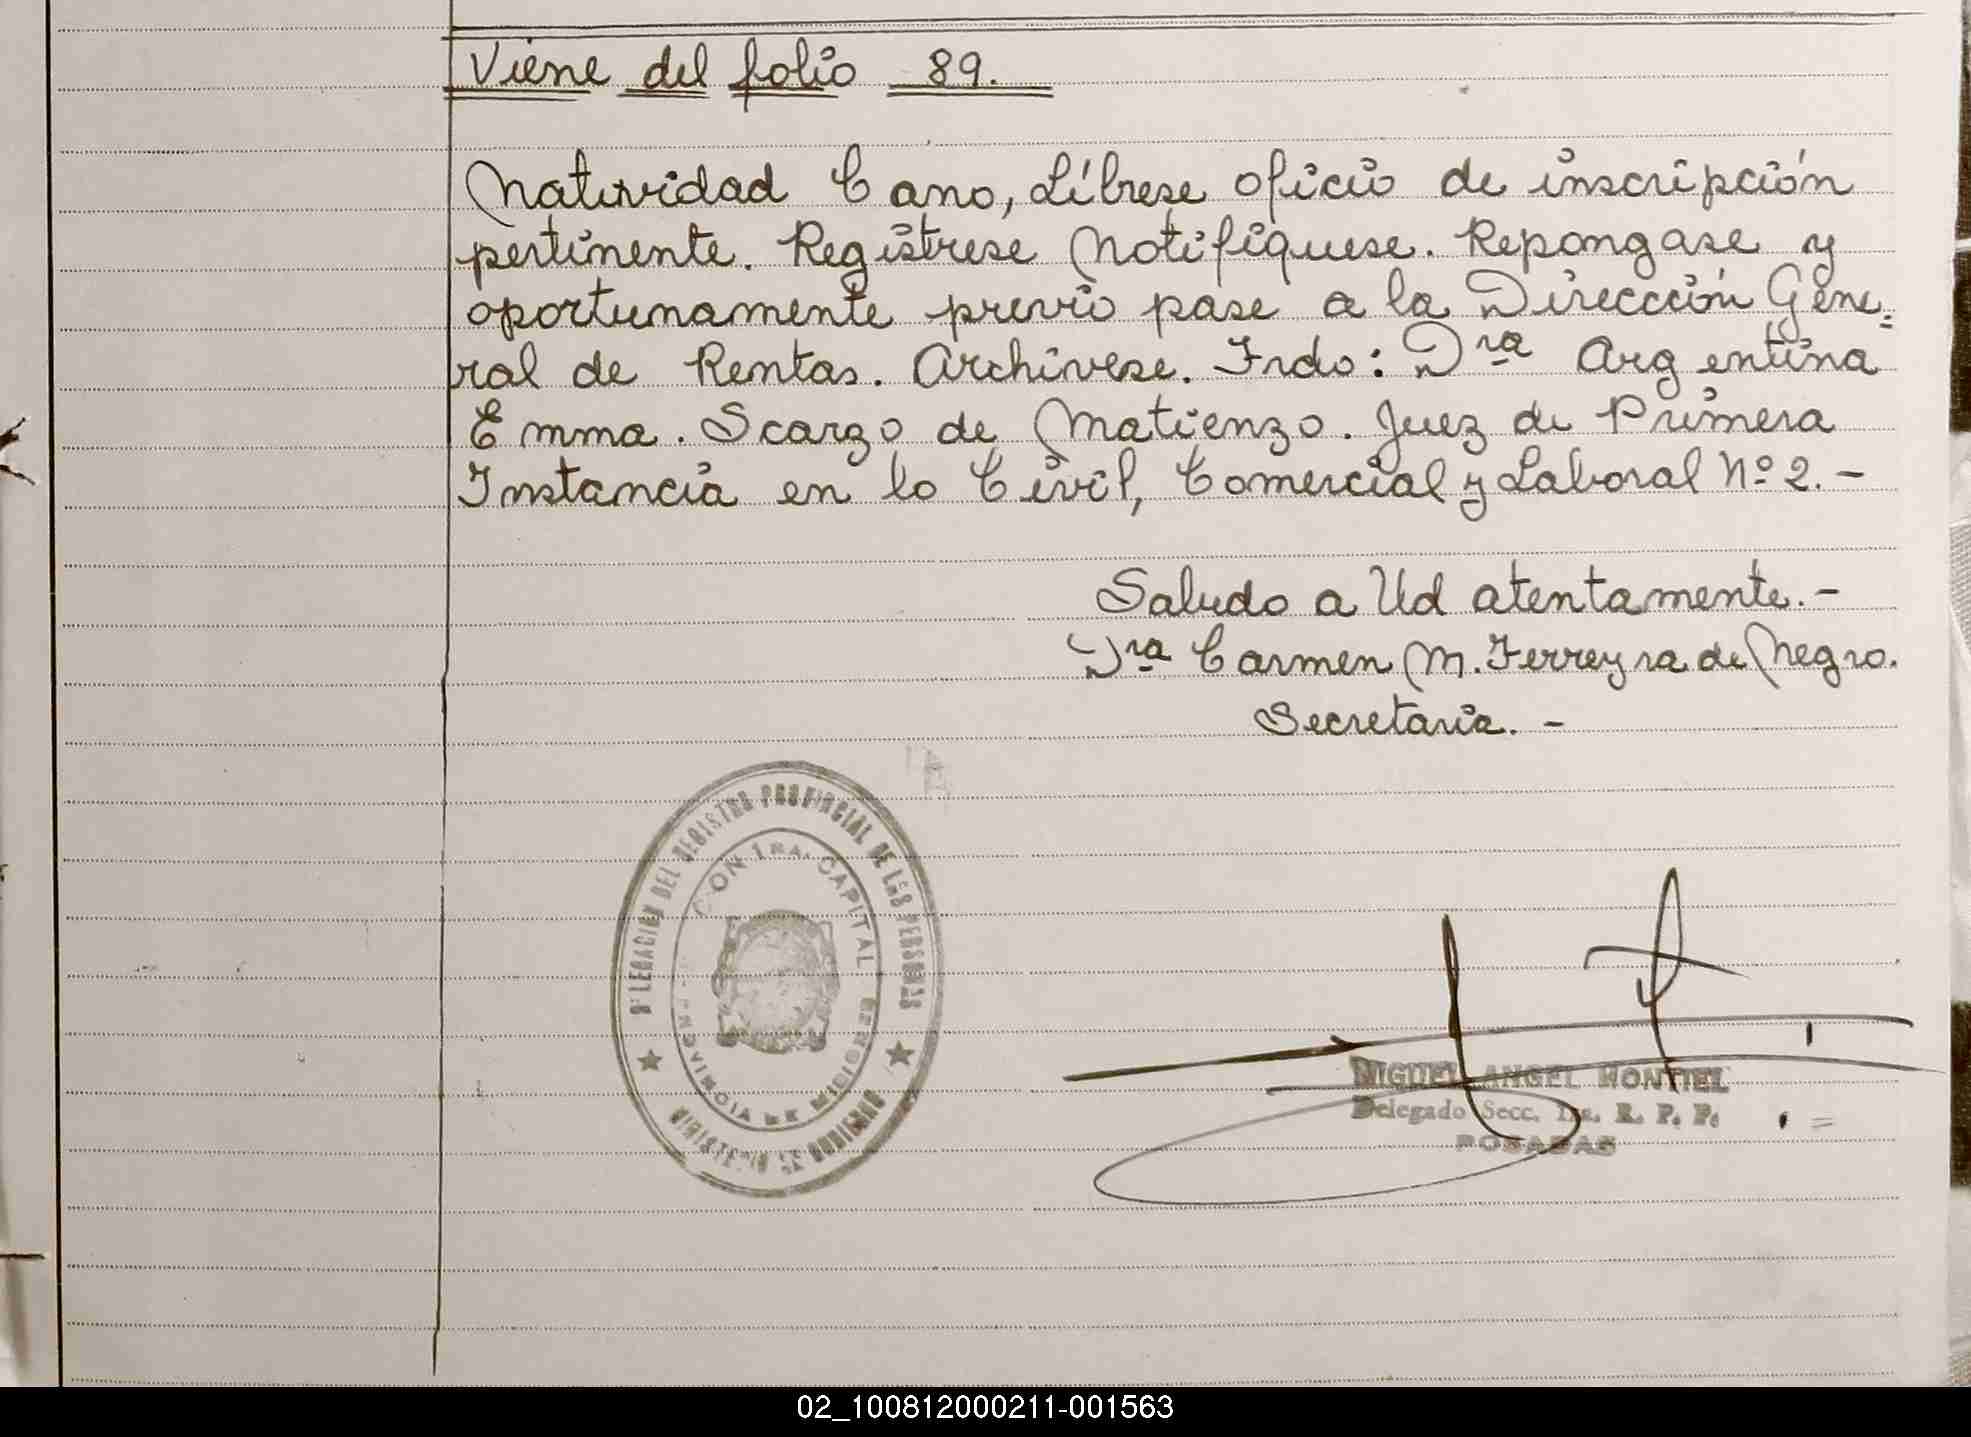 Viene del folio 89.
Natividad Cano, Líbrese oficio de inscripción
pertinente. Registrese Notifíquese. Repongase y
oportunamente previo pase a la Direccción Gene=
ral de Rentas. Archivese. Frdo: Dra Argentina
Emma. Scarzo de Matienzo. Juez de Primera
Instancia en lo Civil, Comercial y Laboral Nº 2.-
Saludo a Ud atentamente.-
Dra Carmen M. Ferreyra de Negro.
Secretaria.-
DELEGACION DEL REGISTRO PROVINCIAL DE LAS PERSONAS
CCION 1RA. CAPITAL
PROVINCIA DE MISIONES
MINISTERIO DE GOBIERNO
MIGUEL ANGEL MONTIEL
Delegado Secc. 1ra. R. P. P.
POSADAS
02_100812000211-001563